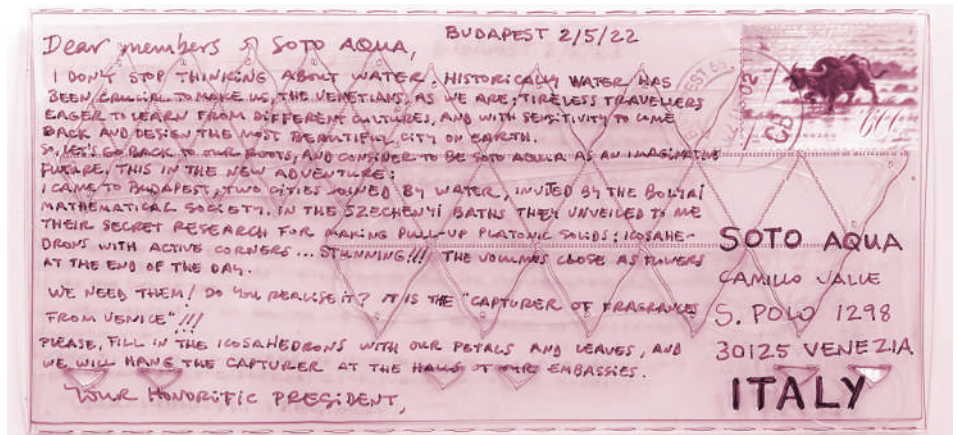 BUDAPEST 2/5/22
Dear members of SOTO AQUA,
I DON'T STOP THINKING ABOUT WATER. HISTORICALLY WATER HAS
BEEN CRUCIAL TO MAKE US, THE VENETIANS, AS WE ARE: TIRELESS TRAVELLERS
EAGER TO LEARN FROM DIFFERENT CULTURES, AND WITH SENSITIVITY TO COME
BACK AND DESIGN THE MOST BEAUTIFUL CITY ON EARTH.
SO, LET'S GO BACK TO OUR ROOTS, AND CONSIDER TO BE SOTO AQUA AS AN IMAGINATIVE
FUTURE, THIS IN THE NEW ADVENTURE:
I CAME TO BUDAPEST, TWO CITIES JOINED BY WATER, INVITED BY THE BOLYAI
MATHEMATICAL SOCIETY. IN THE SZECHENYI BATHS THEY UNVEILED TO ME
THEIR SECRET RESEARCH FOR MAKING PULL-UP PLATONIC SOLIDS: ICOSAHE-
DRONS WITH ACTIVE CORNERS... STUNNING!!! THE VOLUMES CLOSE AS FLOWERS
AT THE END OF THE DAY.
WE NEED THEM! DO YOU REALISE IT? IT IS THE "CAPTURER OF FRAGRANCE
FROM VENICE"!!!
PLEASE, FILL IN THE ICOSAHEDRONS WITH OUR PETALS AND LEAVES, AND
WE WILL HANG THE CAPTURER AT THE HALLS OF OUR EMBASSIES.
YOUR HONORIFIC PRESIDENT,
SOTO AQUA
CAMILLO VALLE
S. POLO 1298
30125 VENEZIA
ITALY